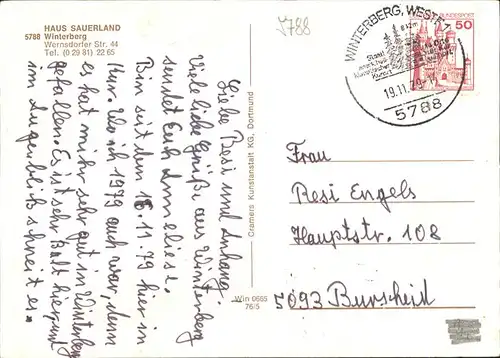 HAUS SAUERLAND
5788 Winterberg
Wernsdorfer Str. 44
Tel. (0 29 81) 22 65
5788
WINTERBERG, WESTF. 1
842m
Staatl.
Kurort
19.11.79
5788
DEUTSCHE BUNDESPOST
50
Liebe Resi und Anhang.
Viele liebe Grüße aus Winterberg
sendet Euch Anneliese.
Bin seit den 16.11.79 hier in
Kur. Wo ich 1979 auch war, denn
es hat mir sehr gut in Winterberg
gefallen. Es ist sehr Kalt hier und
im Augenblick schneit es.
Cramers Kunstanstalt KG, Dortmund
Win 0665
76/5
Frau
Resi Engels
Hauptstr. 108
5093 Burscheid